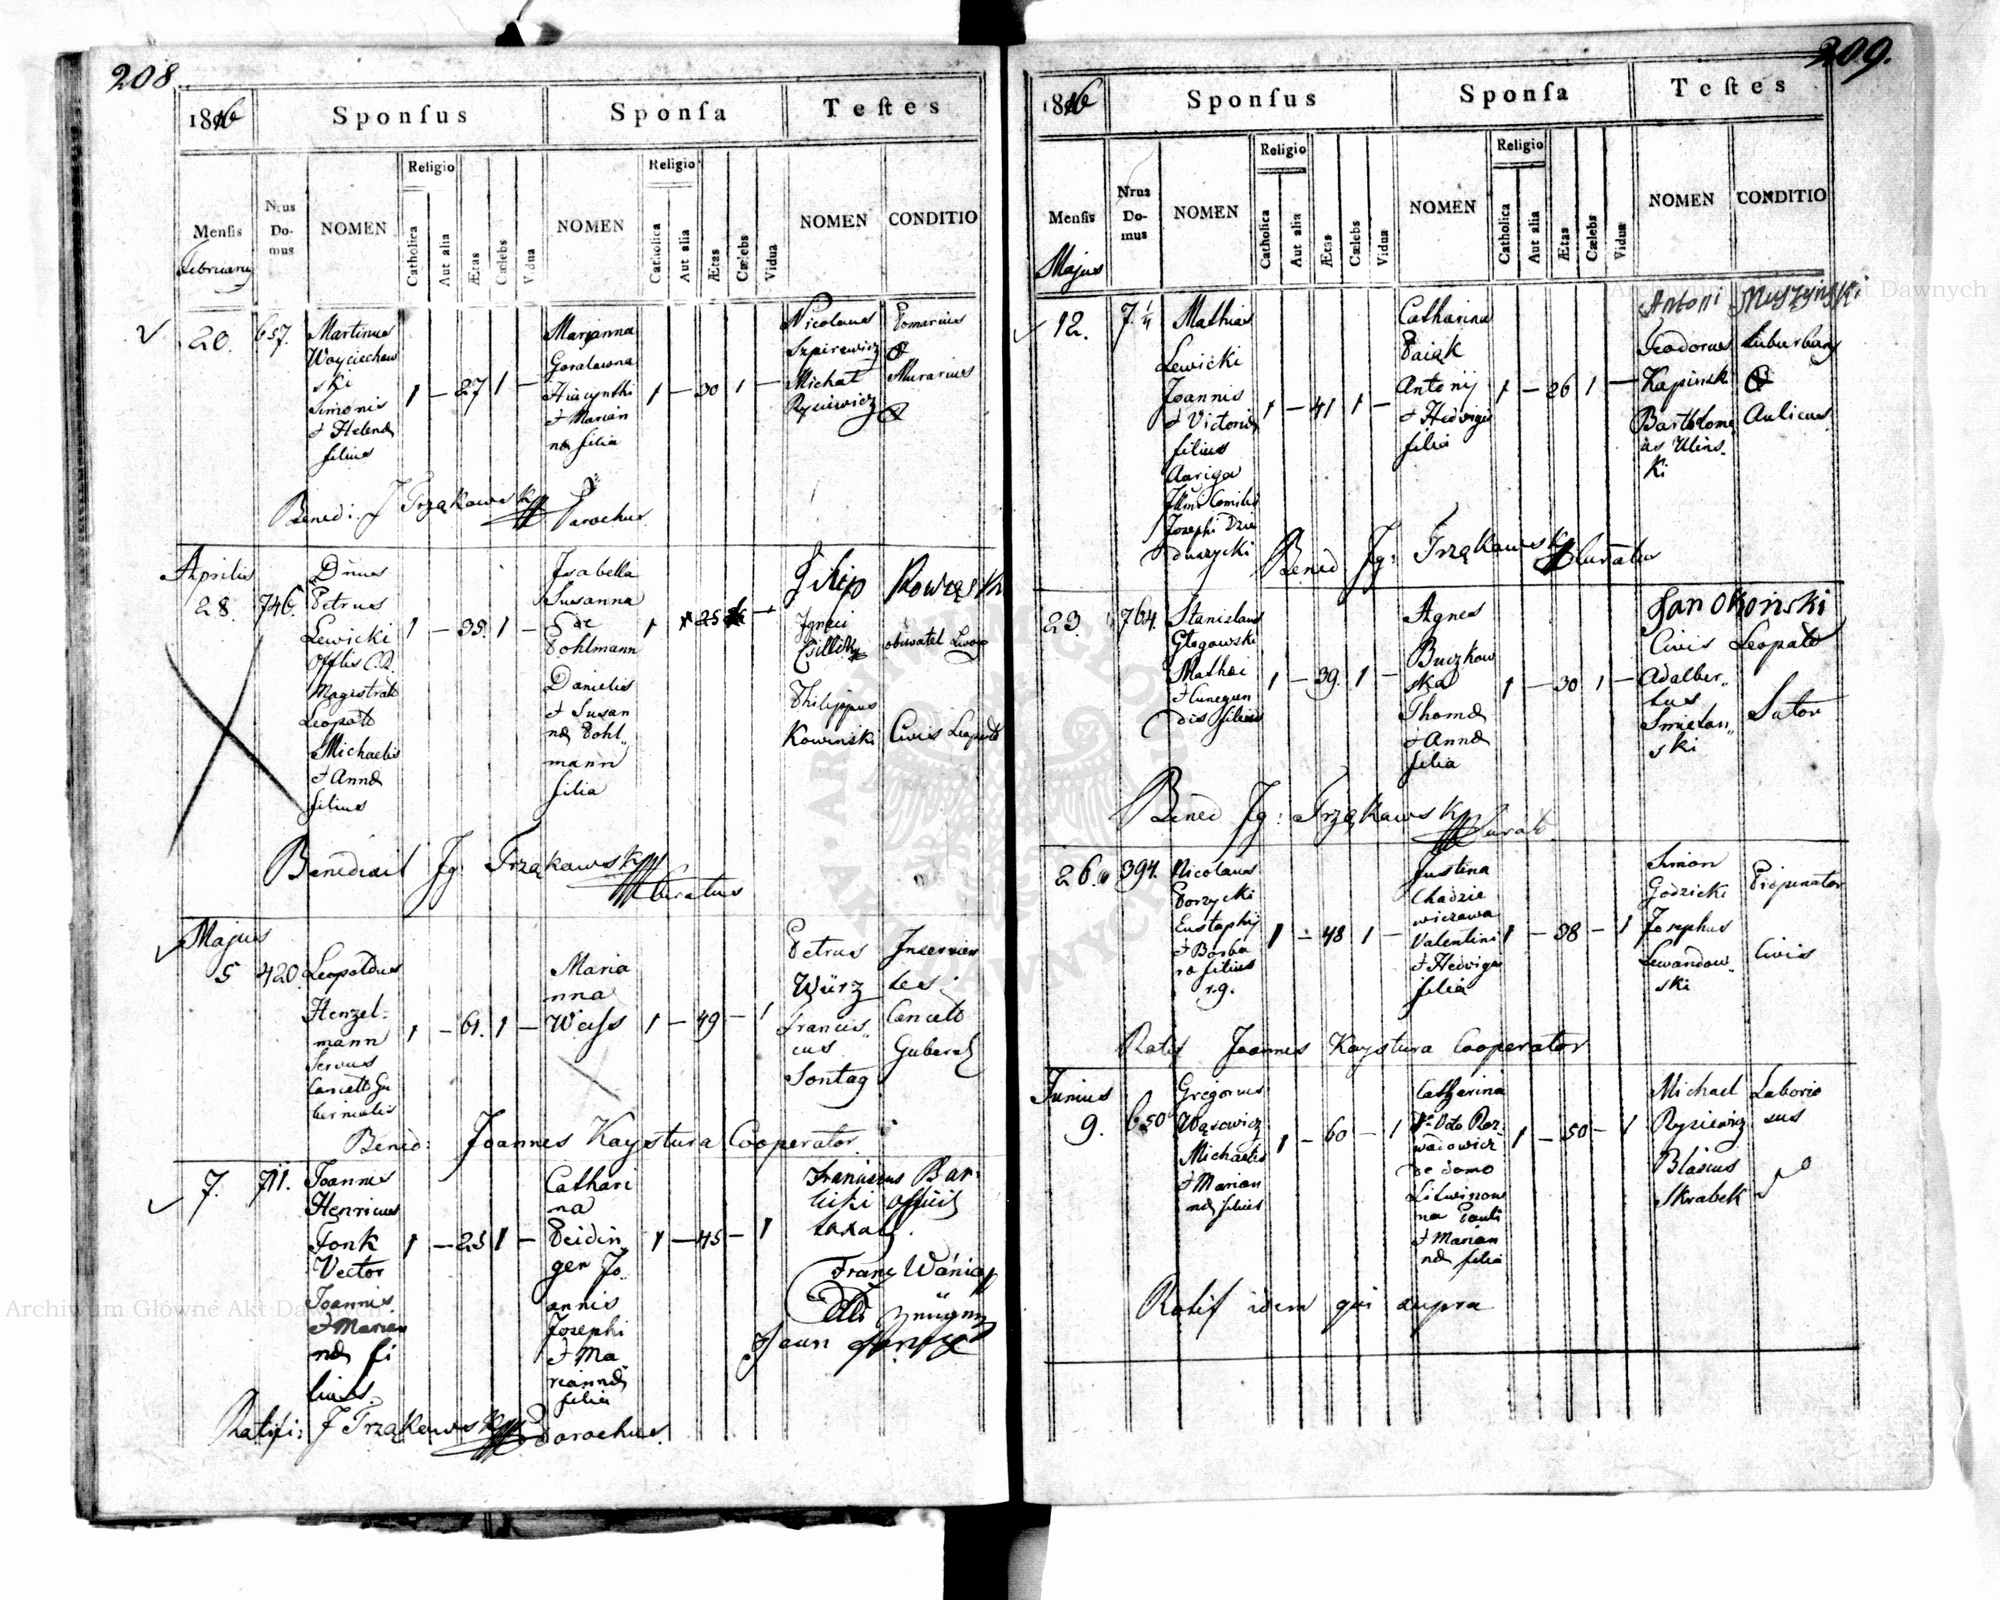 208
1816
Sponſus
Sponſa
Teſtes
Menſis
Nrus Do-mus
NOMEN
Religio
Catholica
Aut alia
Ætas
Cælebs
Vidua
NOMEN
Religio
Catholica
Aut alia
Ætas
Cælebs
Vidua
NOMEN
CONDITIO
February
20.
657.
Martinus
Woyciechow
ski
Simonis
& Helenæ
filius
1 — 27 1 —
Marianna
Goralowna
Hiacynthi
& Marian
næ filia
1 — 30 1 —
Nicolaus
Szpirewicz
Michał
Rysiewicz
Pomarius
Murarius
Bened: J Trząkowski Parochus
Aprilis
28.
746.
Dnus
Petrus
Lewicki
Offlis C.R.
Magistrat
Leopold
Michaelis
& Annæ
filius
1 — 35. 1 —
Isabella
Susanna
de
Pohlmann
Danielis
& Susan
næ Pohl
mann
filia
1
25
Filip Kowęski
Ignaci
obuwatel Lwow
Philippus
Kowinski
Civis Leopold
Benedixit Jg: Trząkowski Curatus
Majus
5
420.
Leopoldus
Henzel-
mann
Servus
Cancell Gu
bernialis
1 — 61. 1 —
Maria
nna
Weiſs
1 — 49 — 1
Petrus
Würz
Francis
cus
Sontag
Inservien
tes
Cancell
Gubernl
Bened: Joannes Kaystura Cooperator
7.
711.
Joannes
Henricus
Fonk
Vector
Joannis
& Marian
næ fi
lius.
1 — 25 1 —
Cathari
na
Peidin
ger Jo
annis
Josephi
& Ma
riannæ
filia
1 — 45 — 1
Franciscus Bar-
licki offici
taxal.
Franz
Jean
Ratifi: J Trząkowski Parochus.
209.
1816
Sponſus
Sponſa
Teſtes
Menſis
Nrus Do-mus
NOMEN
Religio
Catholica
Aut alia
Ætas
Cælebs
Vidua
NOMEN
Religio
Catholica
Aut alia
Ætas
Cælebs
Vidua
NOMEN
CONDITIO
Majus
12.
7. ¼
Mathias
Lewicki
Joannis
& Victoriæ
filius
Auriga
Illmi Comitis
Josephi Dzie
duszycki
1 — 41 1 —
Catharina
Paiąk
Antonij
& Hedvigis
filia
1 — 26 1 —
Antoni Muszyński
Teodorus
Kapinski
Bartolome
us Ulins-
ki
Suburbary
Aulicus
Bened Jg: Trząkowski Curatus
23.
764.
Stanislaus
Głogowski
Mathæi
& Cunegun
dis filius
1 — 39. 1 —
Agnes
Buczkow
ska
Thomæ
& Annæ
filia
1 — 30 1 —
Jan Okoński
Civis Leopold
Adalber-
tus
Smietan-
ski
Sutor
Bened Jg: Trząkowski Curat
26.
394.
Nicolaus
Porzycki
Eustaphij
& Barba
ræ filius
r.g.
1 — 48 1 —
Justina
Chadzie
wiczowa
Valentini
& Hedvigis
filia
1 — 38 — 1
Simon
Godzicki
Josephus
Lewandow-
ski
Propenator
Civis
Ratif Joannes Kaystura Cooperator
Junius
9.
650
Gregorius
Wąsowicz
Michaelis
& Marian
næ filius
1 — 60 — 1
Catharina
1º Voto Roz
wadowicz
de domo
Litwinow
na Pauli
& Marian
næ filia
1 — 50 — 1
Michael
Rysiewicz
Blasius
Skrabek
Laborio
sus
Ratif idem qui supra
Archiwum Główne Akt Dawnych
Archiwum Główne Akt Dawnych
ARCHIWUM GŁÓWNE AKT DAWNYCH